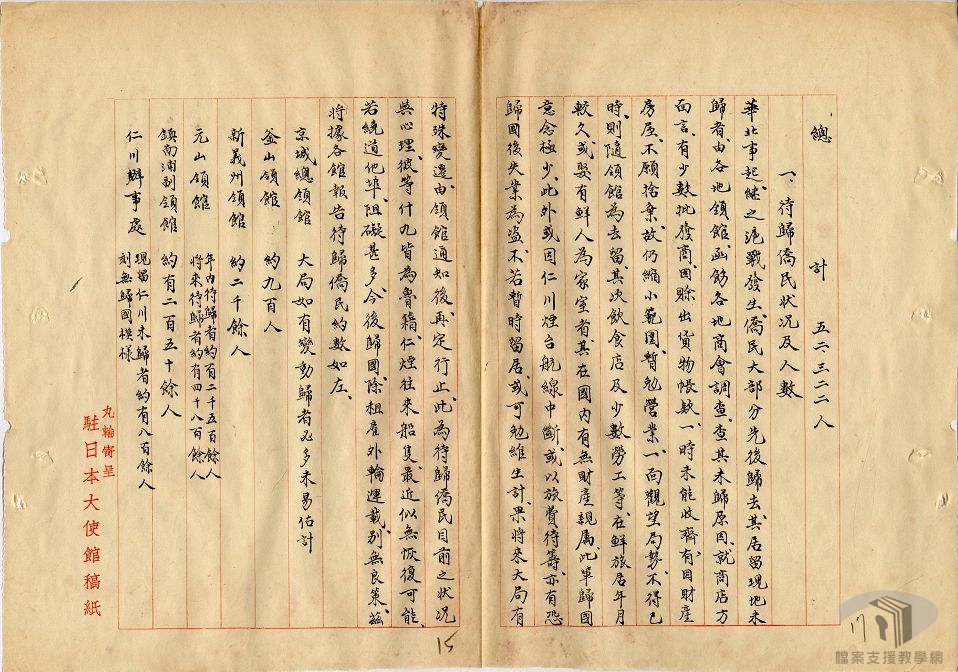 總計 五二、三二二人
一、待歸僑民狀況及人數
華北事起、継之滬戰發生、僑民大部分先後歸去、其居留現地未
歸者、由各地領館函飭各地商會調查、查其未歸原因、就商店方
面言、有少數批發商、因賒出貨物帳欵、一時未能收齊、有因財產
房屋、不願捨棄、故仍縮小範圍、暫勉營業、一面觀望局勢、不得已
時、則隨領館為去留、其次飲食店及少數勞工等、在鮮旅居年月
較久、或娶有鮮人為家室者、其在國內有無財產親属、此輩歸國
意念極少、此外或因仁川煙台航線中斷、或以旅費待籌、亦有恐
歸國後失業為盜、不若暫時留居、或可勉維生計、果將來大局有
特殊變遷、由領館通知後、再定行止、此為待歸僑民目前之狀況
與心理、彼等什九皆為魯籍、仁煙往來船隻、最近似無恢復可能、
若繞道他埠、阻礙甚多、今後歸國、除租產外輪運載、別無良策、茲
將據各館報告待歸僑民約數如左、
京城總領館 大局如有變動歸者必多未易估計
釜山領館 約九百人
新義州領館 約二千餘人
元山領館 年內待歸者約有二千五百餘人
將來待歸者約有四千八百餘人
鎮南浦副領館 約有二百五十餘人
仁川辦事處 現留仁川未歸者約有八百餘人
刻無歸國模樣
丸輪寄呈
駐日本大使館稿紙
15
17
檔案支援教學網